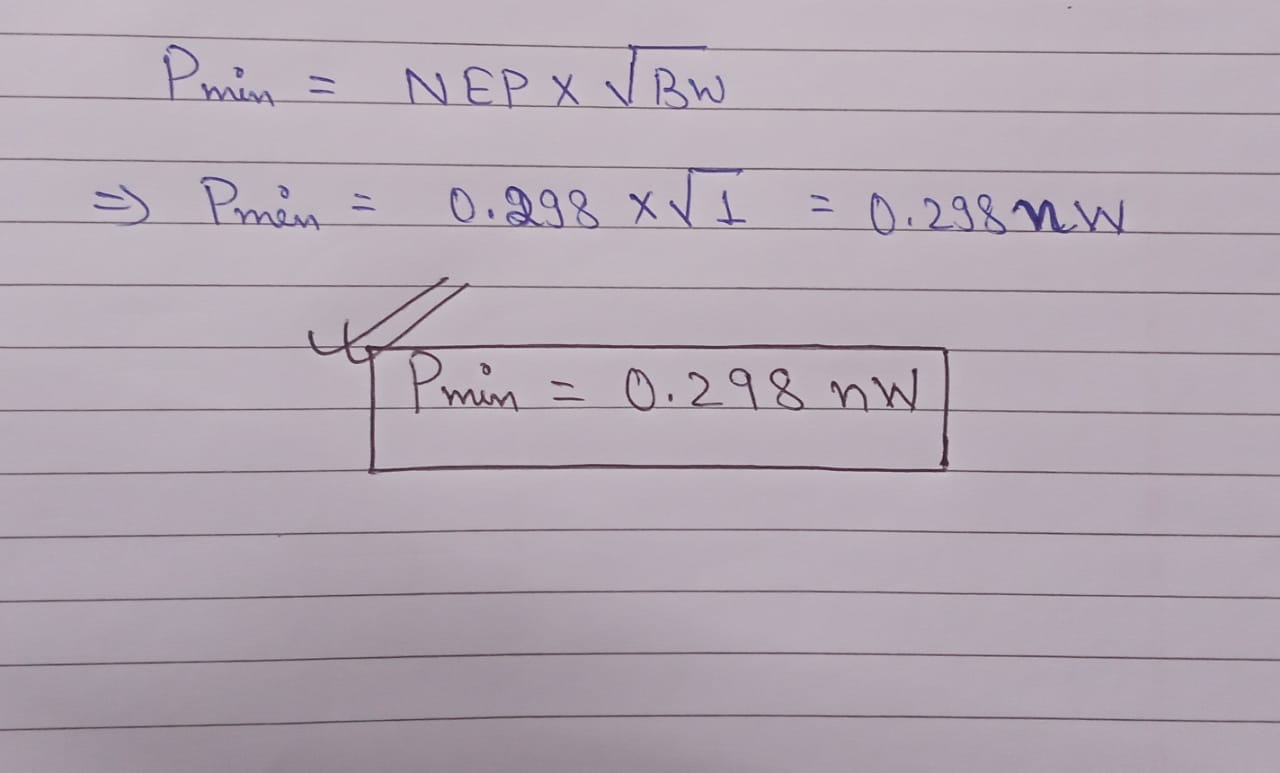 Pmin = NEP × √BW
⇒ Pmin = 0.298 × √1 = 0.298 nW
Pmin = 0.298 nW